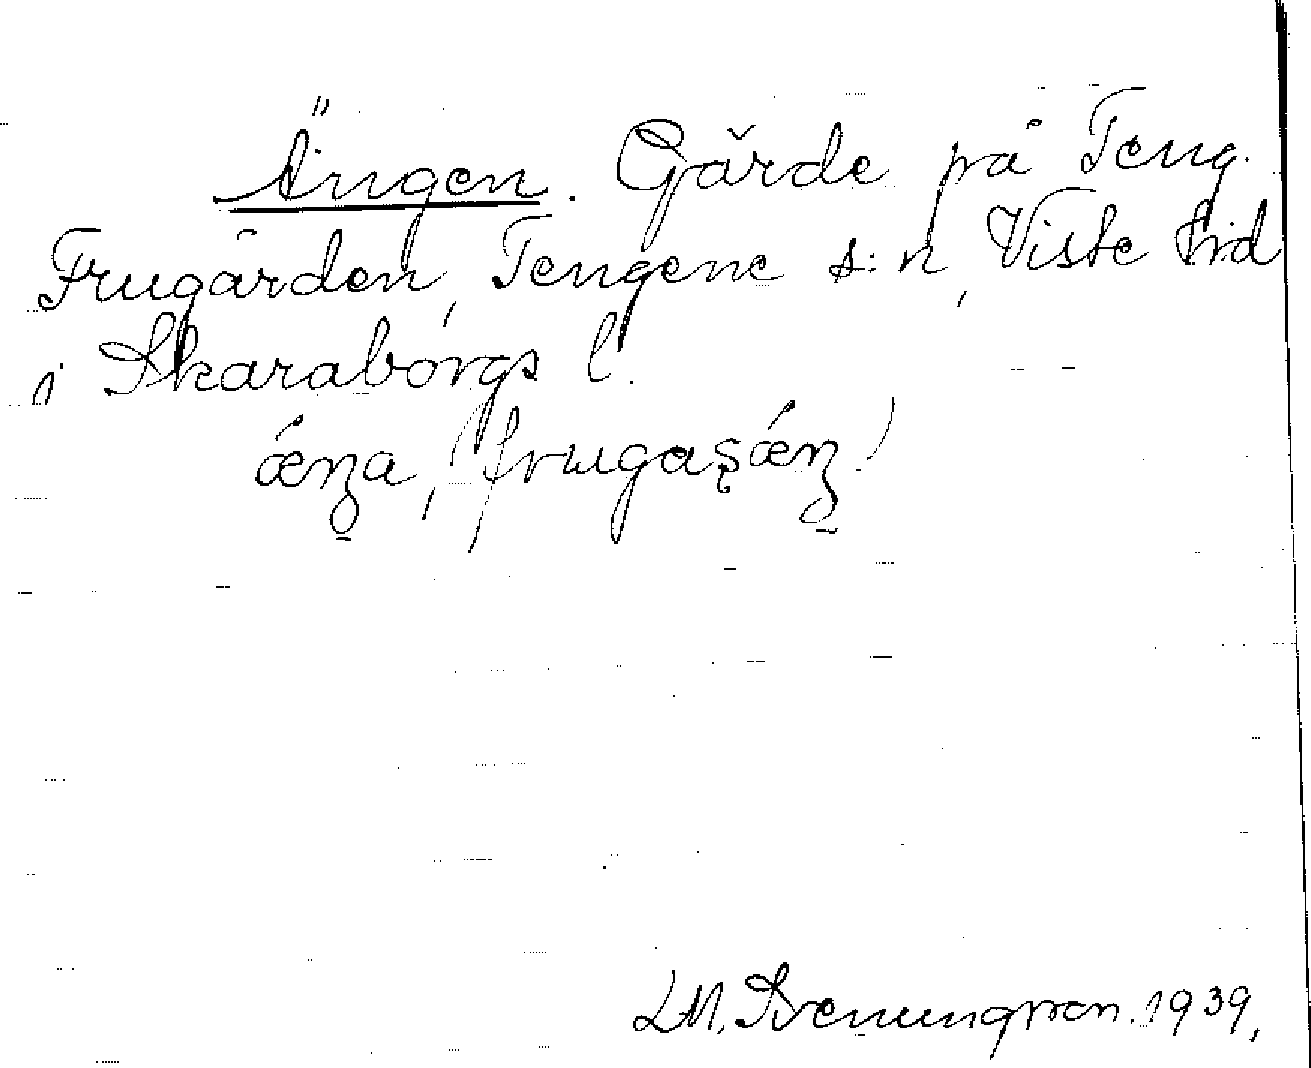 Ängen. Gärde på Teng.
Frugården, Tengene s:n, Viste hrd
i Skaraborgs l.
ǽŋa, (frugaşǽŋ)
LM. Svenungsson. 1939,